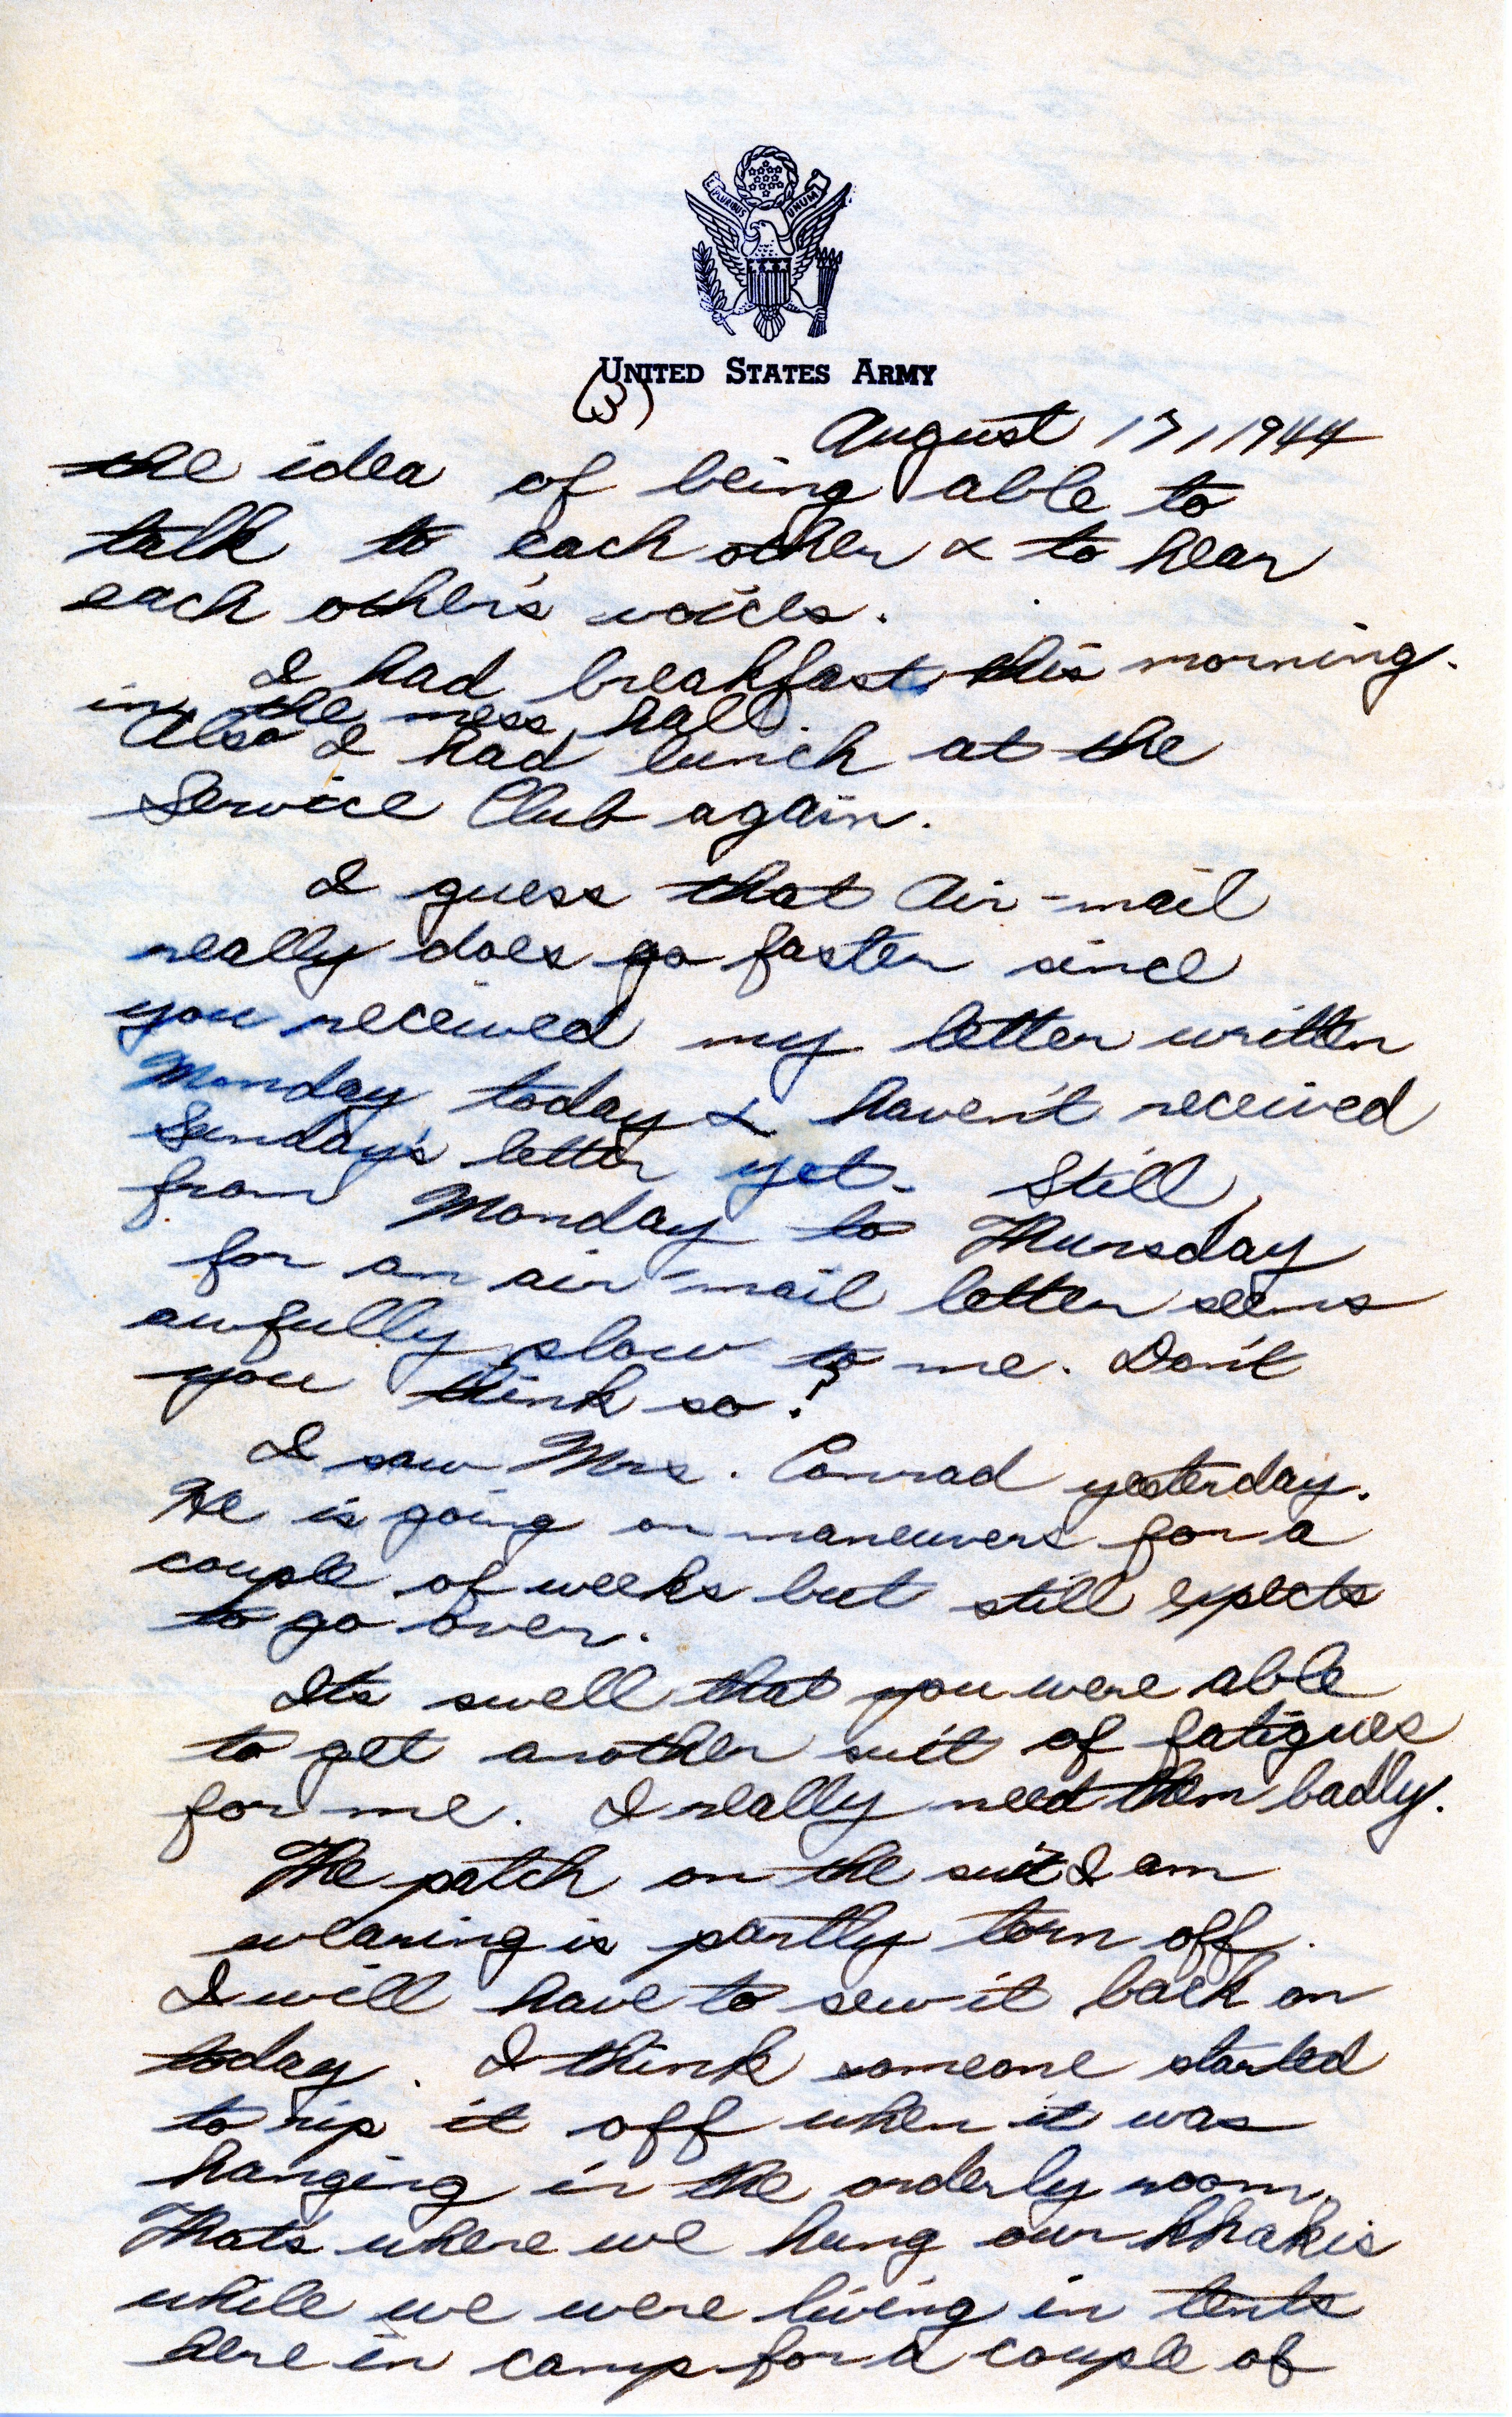 E PLURIBUS UNUM
UNITED STATES ARMY
(3)
August 17, 1944
the idea of being able to
talk to each other & to hear
each other's voices.
I had breakfast this morning.
in the mess hall.
Also I had lunch at the
Service Club again.
I guess that Air-mail
really does go faster since
you received my letter written
Monday today & haven't received
Sunday's letter yet. Still,
from Monday to Thursday
for an air-mail letter seems
awfully slow to me. Don't
you think so?
I saw Mrs. Conrad yesterday.
He is going on maneuvers for a
couple of weeks but still expects
to go over.
Its swell that you were able
to get another suit of fatigues
for me. I really need them badly.
The patch on the suit I am
wearing is partly torn off.
I will have to sew it back on
today. I think someone started
to rip it off when it was
hanging in the orderly room.
That's where we hung our khakis
while we were living in tents
here in camp for a couple of